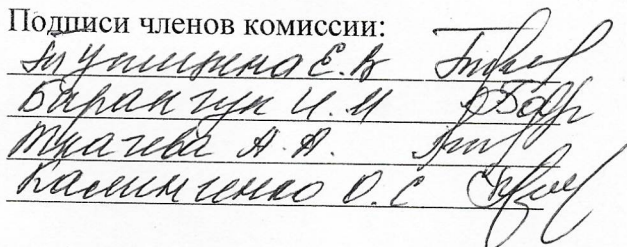 Подписи членов комиссии:
Е. В
Баранчук И. М
Ткачева А. А.
Калиниченко О. С